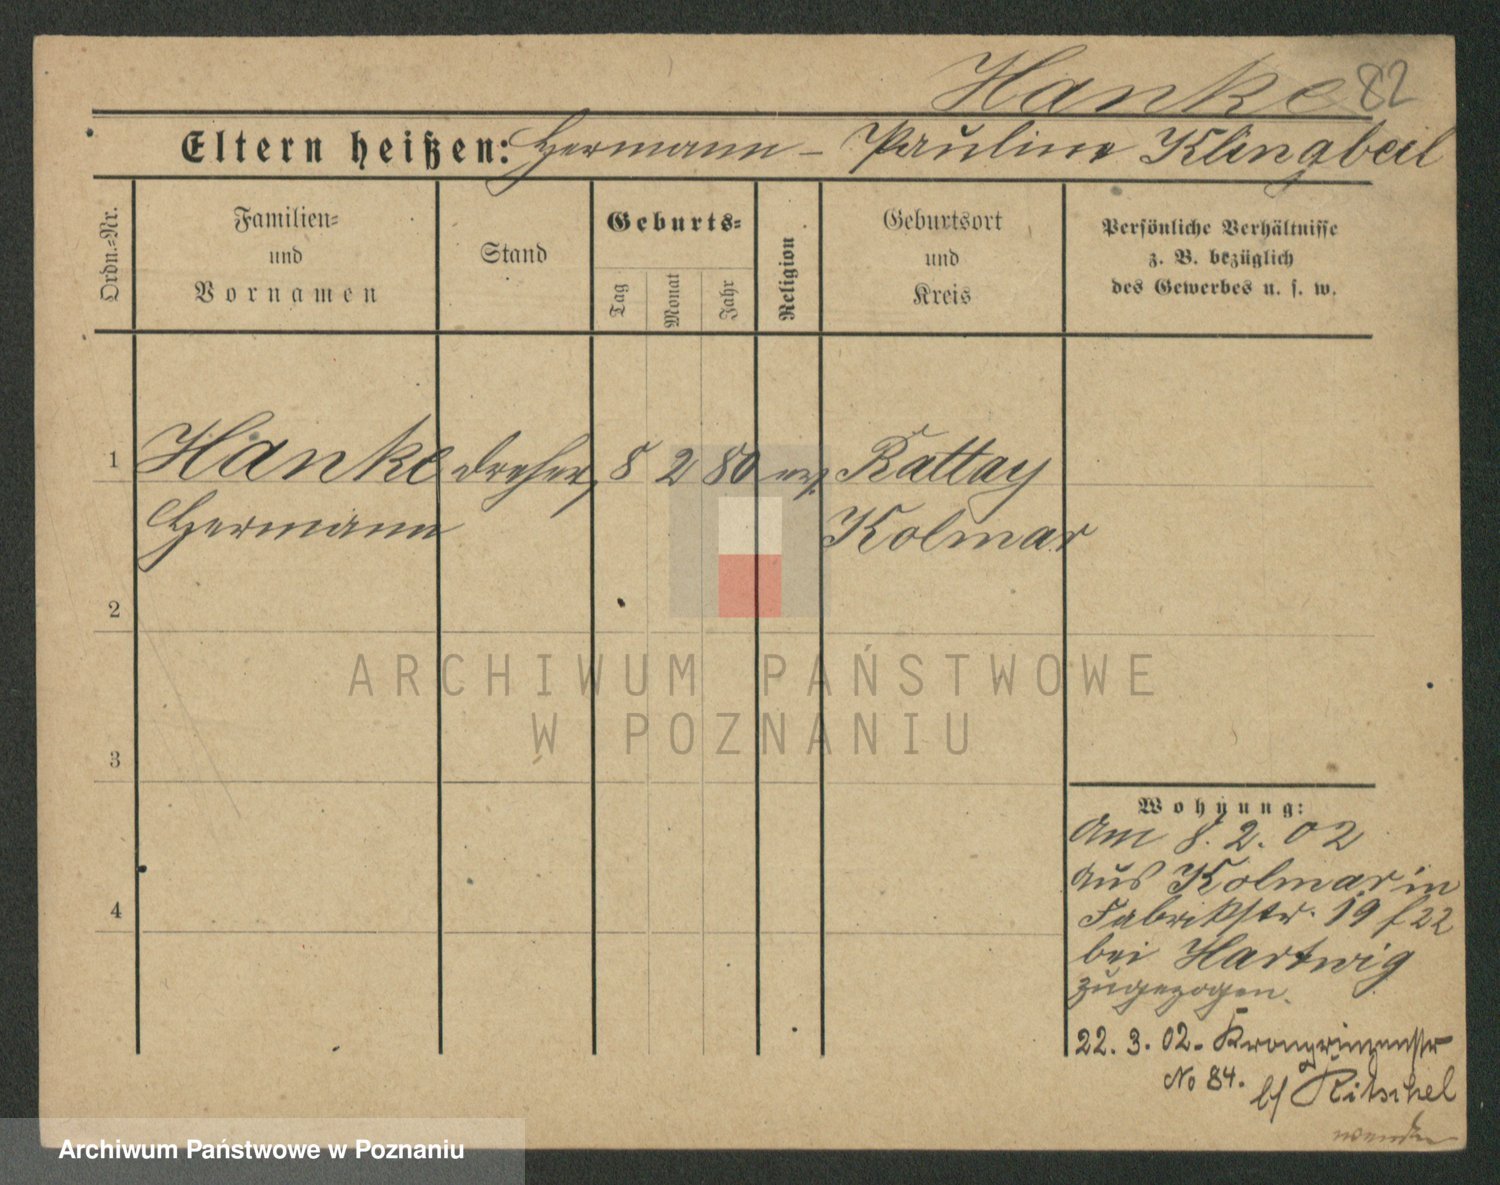 Hanke 82
Eltern heißen: Hermann – Pauline Klingbeil
Ordn.=Nr.
Familien=
und
Vornamen
Stand
Geburts=
Tag
Monat
Jahr
Religion
Geburtsort
und
Kreis
Persönliche Verhältnisse
z. B. bezüglich
des Gewerbes u. s. w.
1 Hanke Dreher, 8 2 80 ev. Rattay
Hermann Kolmar
2
3
4
ARCHIWUM PAŃSTWOWE
W POZNANIU
Wohnung:
Am 8. 2. 02
aus Kolmar in
Fabrikstr. 19 f 22
bei Hartwig
zugezogen.
22. 3. 02. Kronprinzenstr
No 84. b/ Ritschel
wenden
Archiwum Państwowe w Poznaniu